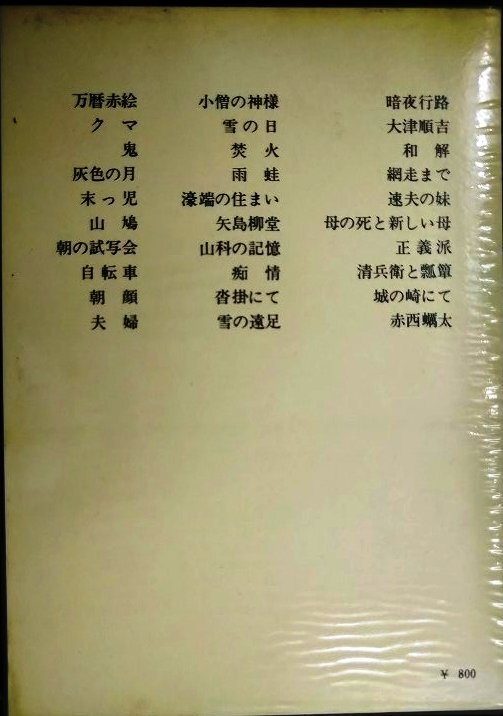 暗夜行路
大津順吉
和解
網走まで
速夫の妹
母の死と新しい母
正義派
清兵衛と瓢簞
城の崎にて
赤西蠣太
小僧の神様
雪の日
焚火
雨蛙
濠端の住まい
矢島柳堂
山科の記憶
痴情
沓掛にて
雪の遠足
万暦赤絵
クマ
鬼
灰色の月
末っ児
山鳩
朝の試写会
自転車
朝顔
夫婦
¥ 800